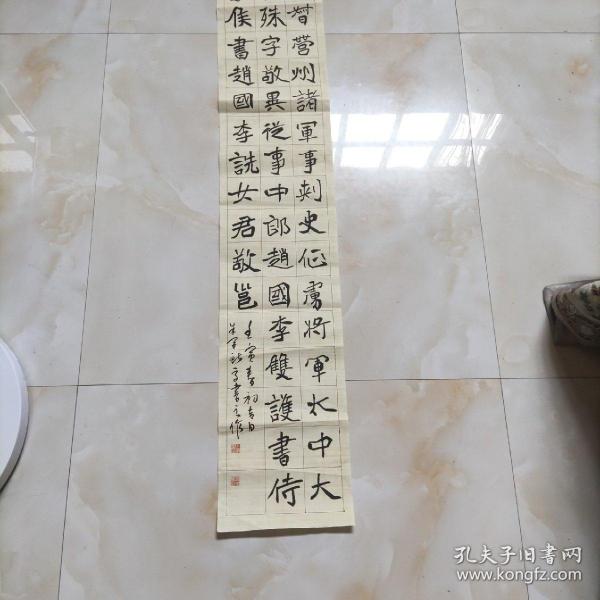 督營州諸軍事刺史征虜將軍太中大
殊字敬異從事中郎趙國李雙護書侍
侯書趙國李詵女君敬邕
壬寅春初吉日
書之作
孔夫子旧书网
www.kongfz.com